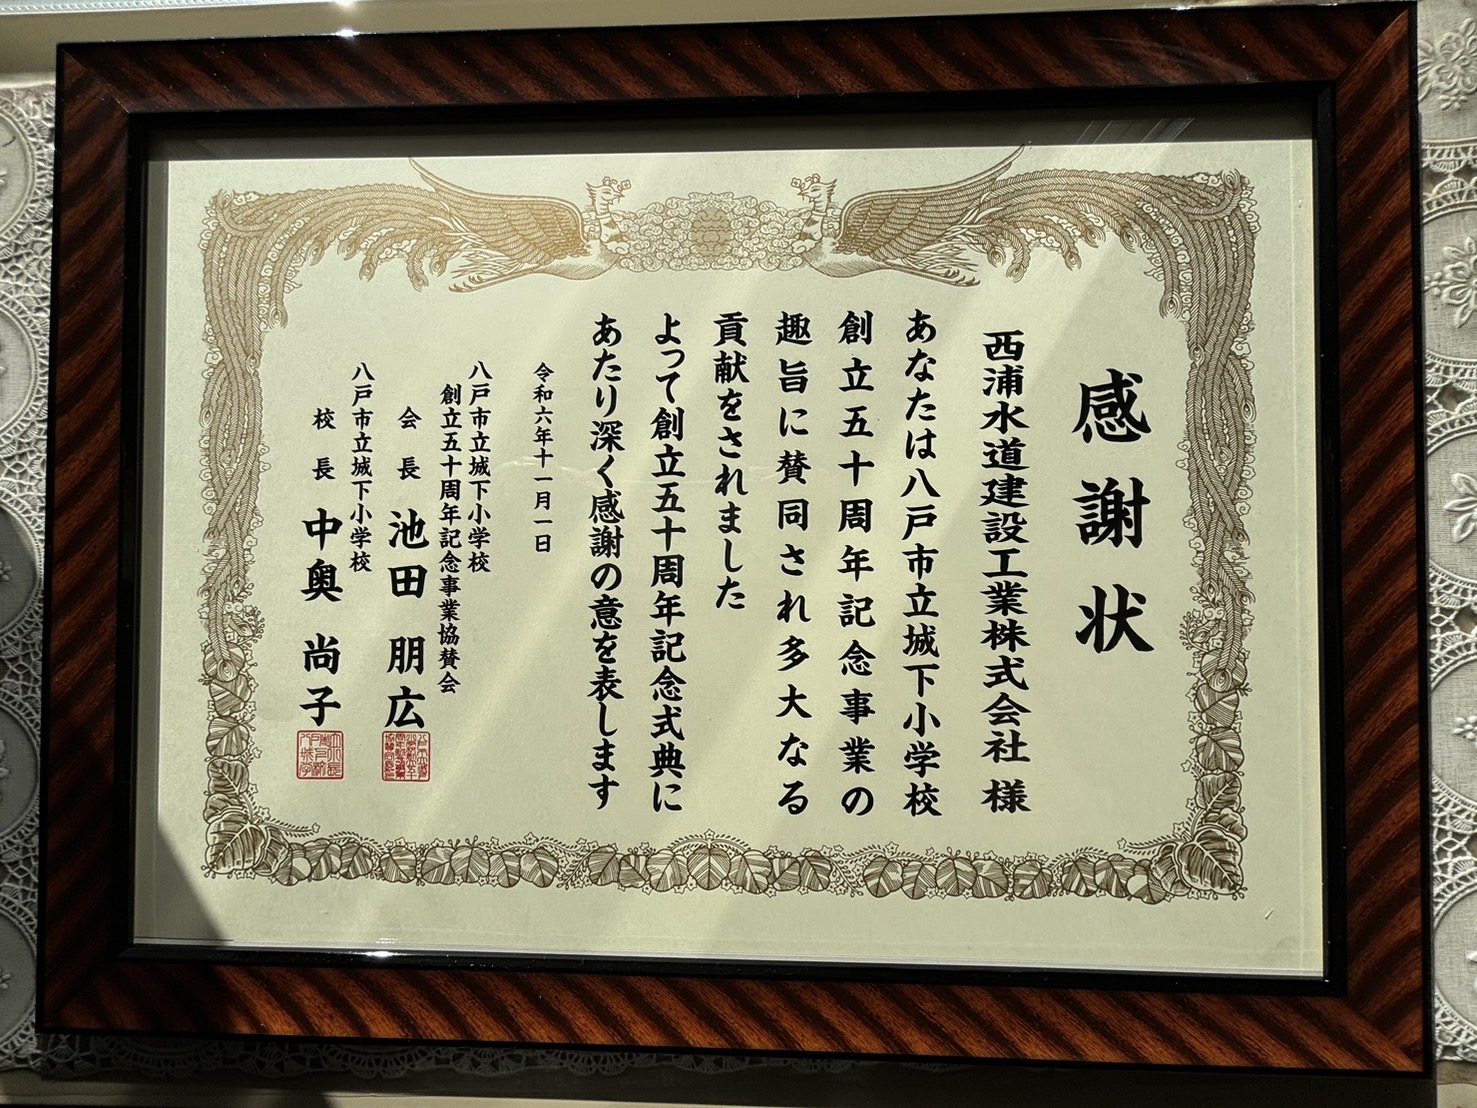 感謝状
西浦水道建設工業株式会社 様
あなたは八戸市立城下小学校
創立五十周年記念事業の
趣旨に賛同され多大なる
貢献をされました
よって創立五十周年記念式典に
あたり深く感謝の意を表します
令和六年十一月一日
八戸市立城下小学校
創立五十周年記念事業協賛会
会長 池田 朋広
八戸市立城下小学校
校長 中奥 尚子